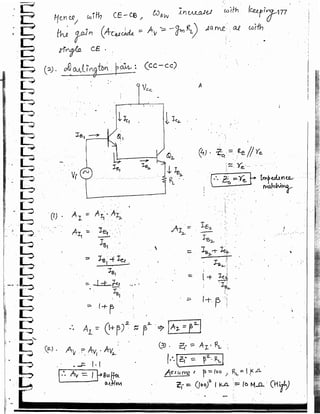 Hence, with CE-CB, ω_BW increases with keeping 177
the gain (A_cascade = A_V = -g_m R_L) same as with
single CE.
(2). Darlington pair: (CC-CC)
V_CC
A
I_C1
I_C2
I_B1
Q_1
Q_2
I_E1
I_B2
I_E2
V_i
R_L
(4). Z_o = R_E // r_e
≈ r_e
∴ Z_o = r_e → Impedance matching.
(1). A_I = A_I1 · A_I2
A_I1 = I_E1 / I_B1
= (I_B1 + I_C1) / I_B1
= 1 + I_C1 / I_B1
= 1+β
A_I2 = I_E2 / I_B2
= (I_B2 + I_C2) / I_B2
= 1 + I_C2 / I_B2
= 1+β
∴ A_I = (1+β)² ≈ β² ⇒ A_I = β²
(2). A_V = A_V1 · A_V2
= 1·1
∴ A_V = 1 → Buffer action
(3). Z_i = A_I · R_L
∴ Z_i = β² R_L
Assume, β=100, R_L = 1 KΩ
Z_i = (100)² 1 KΩ = 10 MΩ (High)